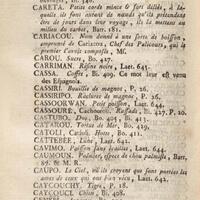 CARETA. Petits cordes mince & fort déliés, à la-
quelle ils font autant de nœuds qu'ils prétendent
être de jours dans leur voyage, ils la mettent au
milieu du carbet, Barr. 181.
CARIACOU. Nom donné à une sorte de boisson
empruntée de Cariacou, Chef des Palicours, qui le
premier l'avoit composée, Mſ.
CAROU. Sucre, Bo. 427.
CARRIMAN. Résine noire, Laet. 644.
CASSA. Coffre, Bi. 409. Ce mot leur est venu
des Espagnols.
CASSIRI. Bouteille de magnoc, P. 26.
CASSIRIPO. Raclures de magnoc, P. 26.
CASSOORWAN. Petit poisson, Laet. 644.
CASSOURE, Cachourou. Rassade, Bi. 427. P. 20.
CASTUBO. Dos, Bo. 405, Bi. 411.
CATAROU. Tortue de Mer, Bo. 439.
CATOLI, Catauli. Hotte, Bo. 411.
CATTEBÉE, Lune, Laet. 641.
CAVIMO. Poisson sans écailles, Laet. 644.
CAUMOUN. Palmier, espece de chou palmiste, Barr.
87. & M. R.
CAUPO. Le Ciel, où ils croyent que sont portées les
ames de ceux qui ont bien vécu, Laet. 642.
CAYCOUCHY. Tigre, P. 18.
CAYCOUCI. Chien, Bi. 408.